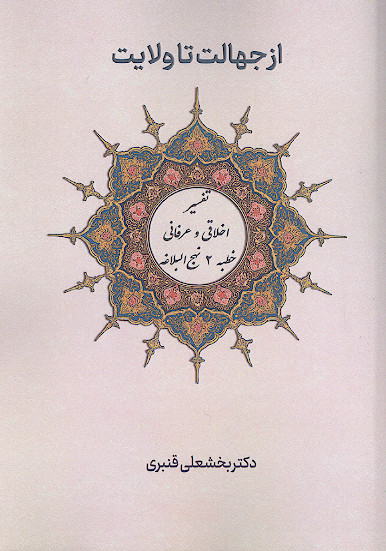 از جهالت تا ولایت
تفسیر
اخلاقی و عرفانی
خطبه ۲ نهج البلاغه
دکتر بخشعلی قنبری